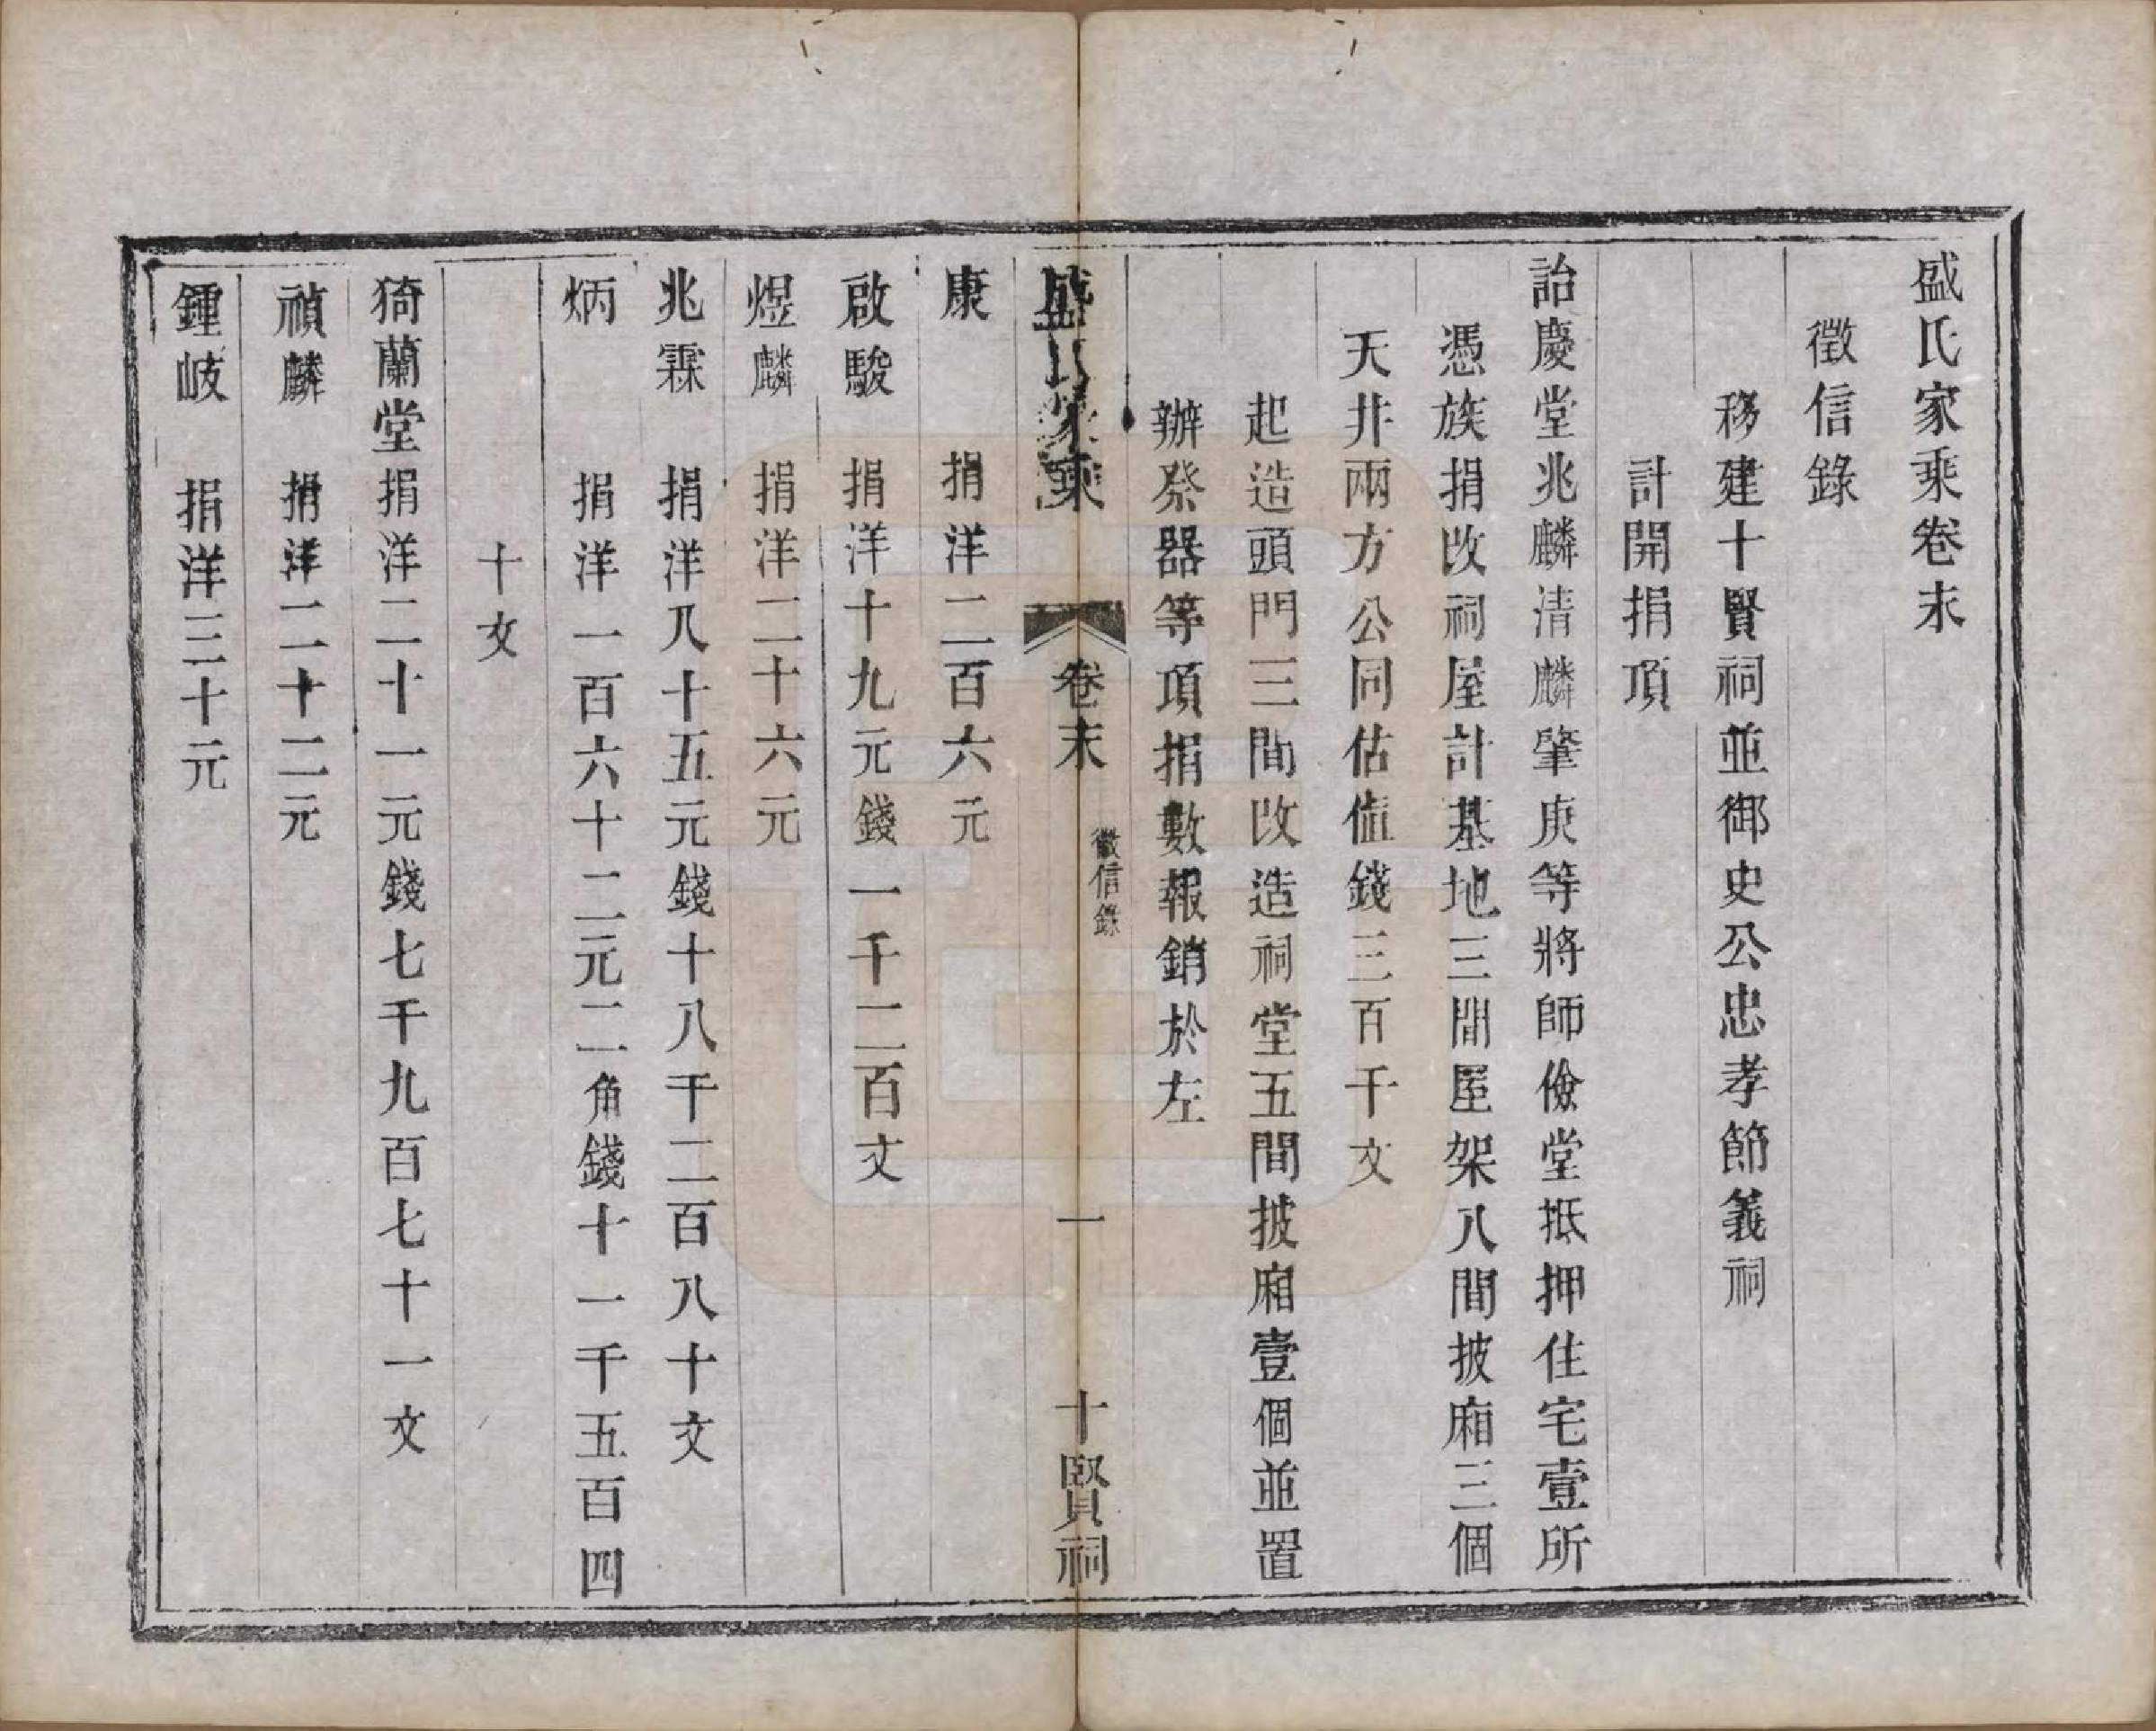 盛氏家乘卷末
徵信錄
移建十賢祠並御史公忠孝節義祠
計開捐項
詒慶堂兆麟清麟肇庚等將師儉堂抵押住宅壹所
憑族捐改祠屋計基地三間屋架八間披廂三個
天井兩方公同估值錢三百千文
起造頭門三間改造祠堂五間披廂壹個並置
辦祭器等項捐數報銷於左
盛氏家乘
卷末
徵信錄
一
十賢祠
康 捐洋二百六元
啟駿 捐洋十九元錢一千二百文
煜麟 捐洋二十六元
兆霖 捐洋八十五元錢十八千二百八十文
炳 捐洋一百六十二元二角錢十一千五百四
十文
猗蘭堂捐洋二十一元錢七千九百七十一文
禎麟 捐洋二十二元
鍾岐 捐洋三十元